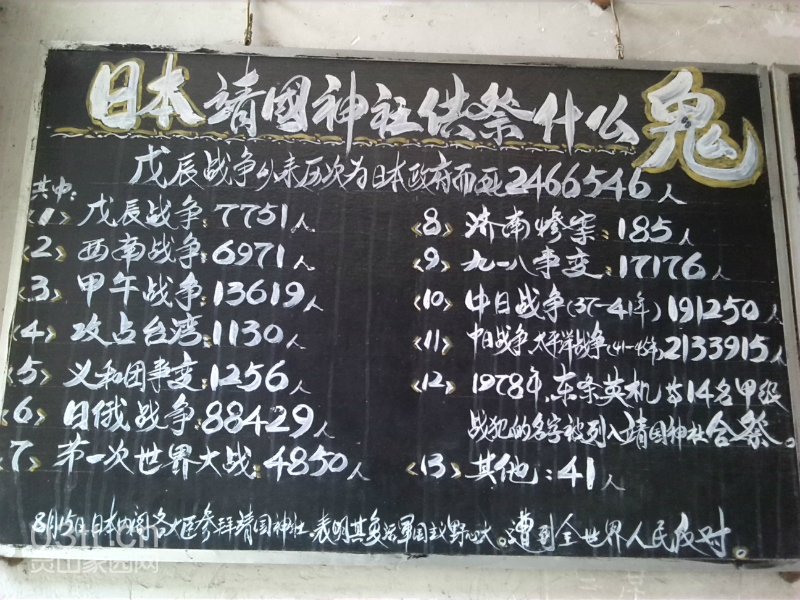 日本靖國神社供祭什么鬼
戊辰战争以来历次为日本政府而死2466546人
其中:
<1> 戊辰战争:7751人
<2> 西南战争:6971人
<3> 甲午战争:13619人
<4> 攻占台湾:1130人
<5> 义和团事变:1256人
<6> 日俄战争:88429人
<7> 第一次世界大战:4850人
<8> 济南惨案:185人
<9> 九一八事变:17176人
<10> 中日战争(37-41年)191250人
<11> 中日战争太平洋战争(41-45年)2133915人
<12> 1978年,东条英机等14名甲级
战犯的名字被列入靖国神社合祭。
<13> 其他:41人
8月15日日本内阁各大臣参拜靖国神社,表明其复活军国主义野心大。遭到全世界人民反对。